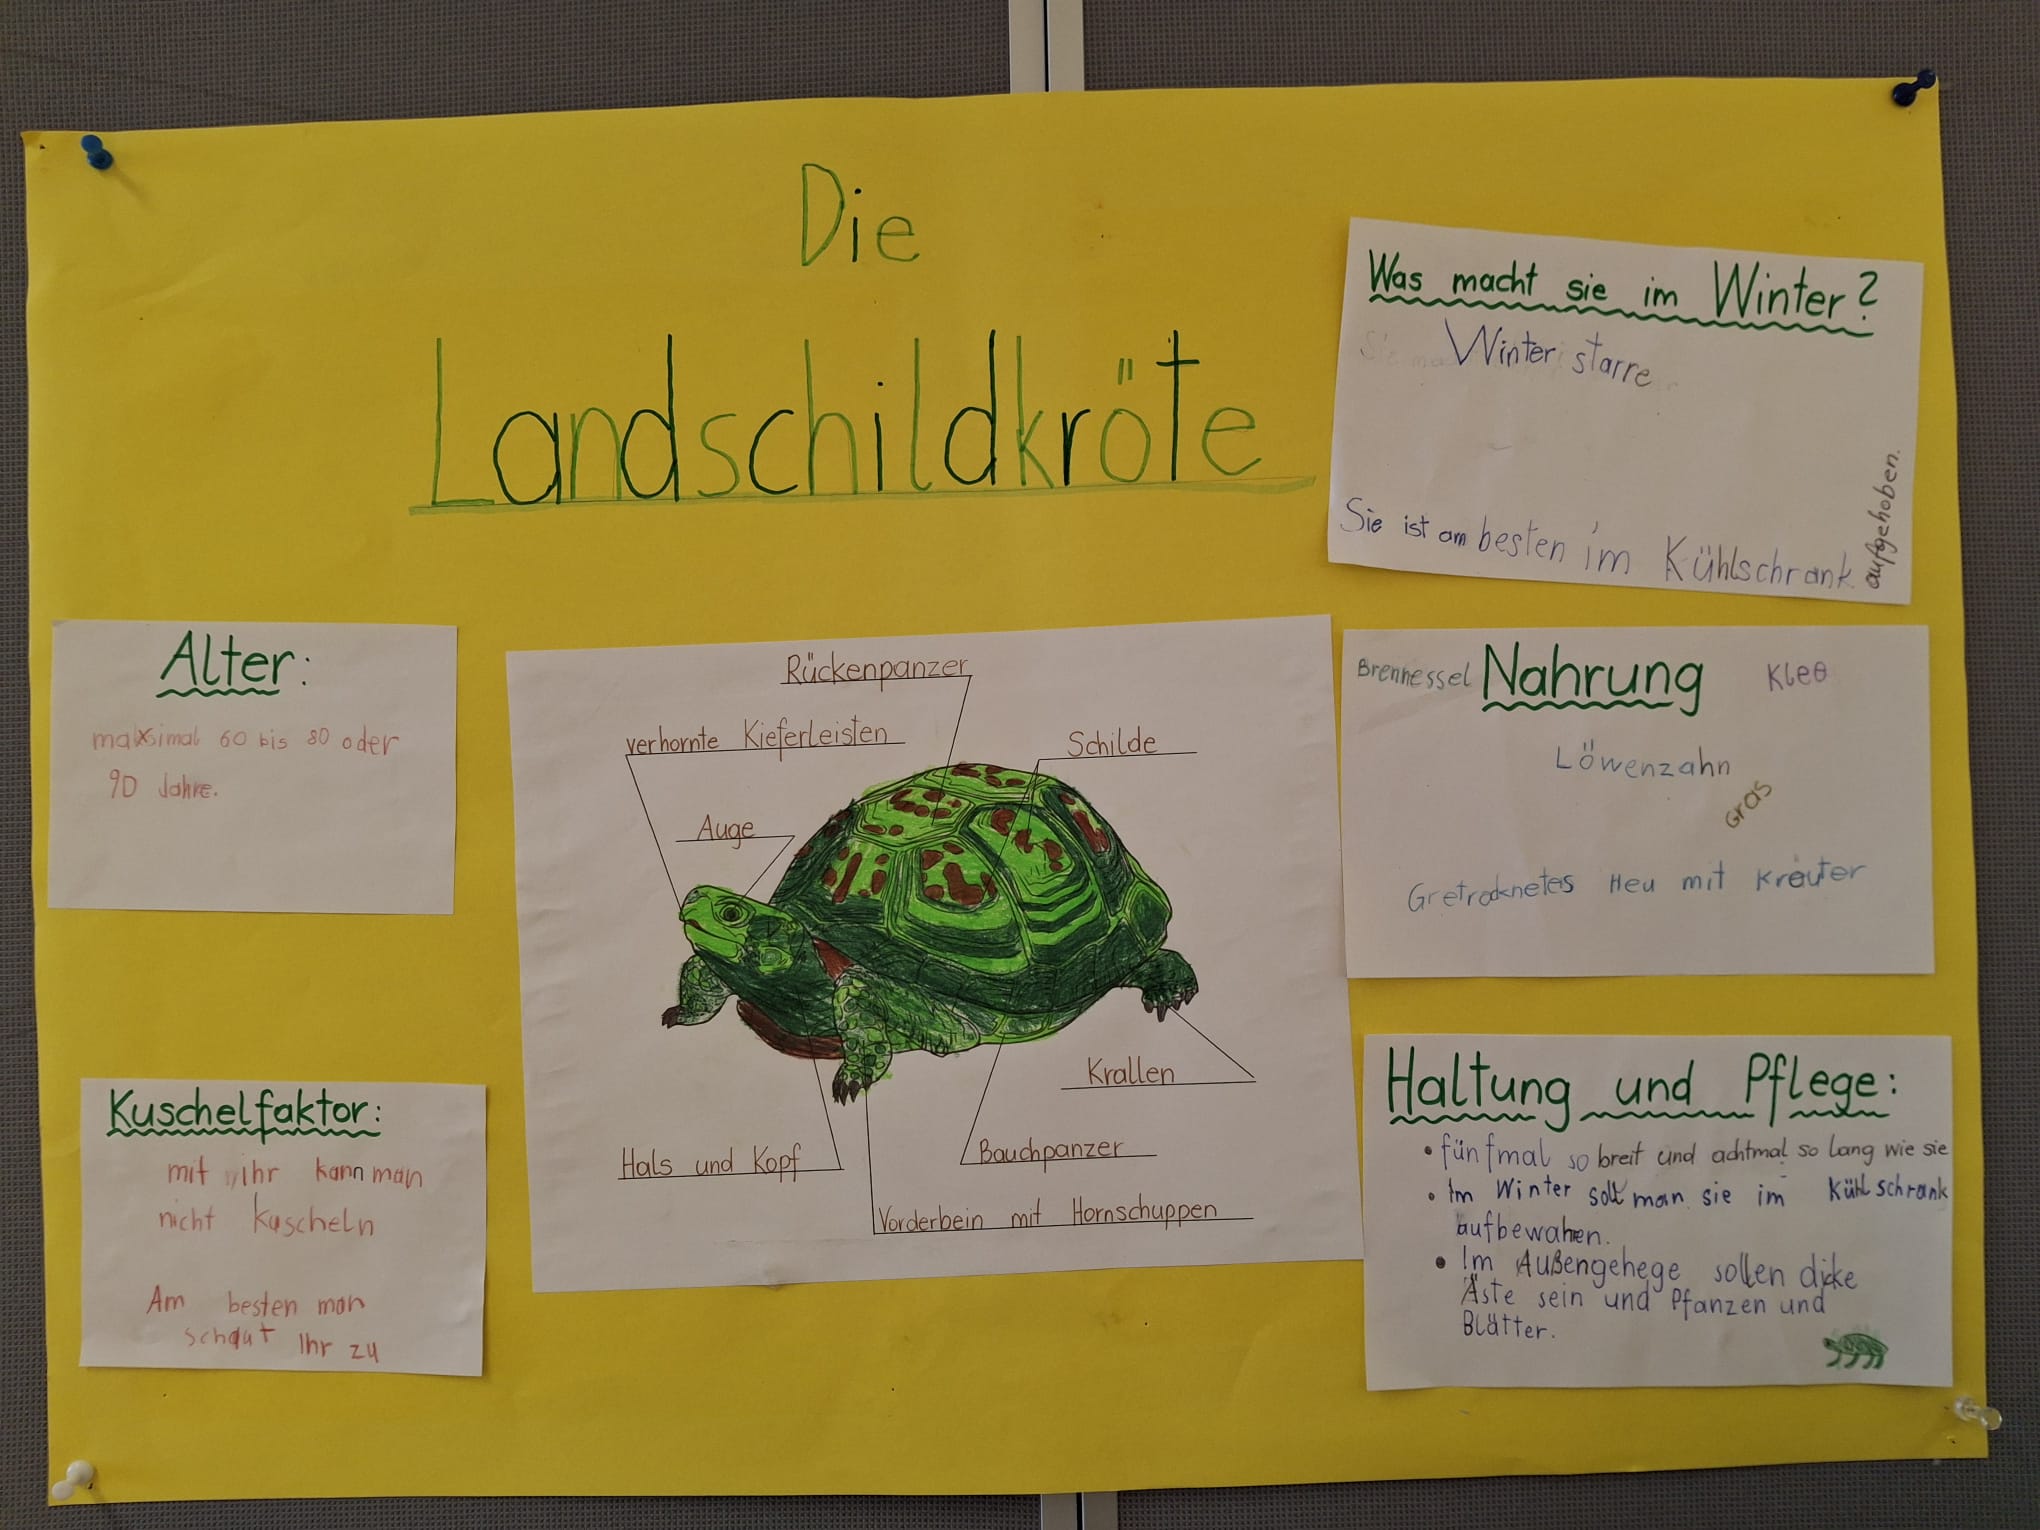 Die
Landschildkröte
Was macht sie im Winter?
Winterstarre
Sie ist am besten im Kühlschrank
aufgehoben.
Alter:
maximal 60 bis 80 oder
90 Jahre.
Rückenpanzer
verhornte Kieferleisten
Schilde
Auge
Krallen
Hals und Kopf
Bauchpanzer
Vorderbein mit Hornschuppen
Brennessel Nahrung Klee
Löwenzahn
Gras
Gretrocknetes Heu mit Kräuter
Kuschelfaktor:
mit ihr kann man
nicht Kuscheln
Am besten man
schaut Ihr zu
Haltung und Pflege:
• fünfmal so breit und achtmal so lang wie sie
• Im Winter soll man sie im Kühlschrank
aufbewahren.
• Im Außengehege sollen dicke
Äste sein und Pfanzen und
Blätter.